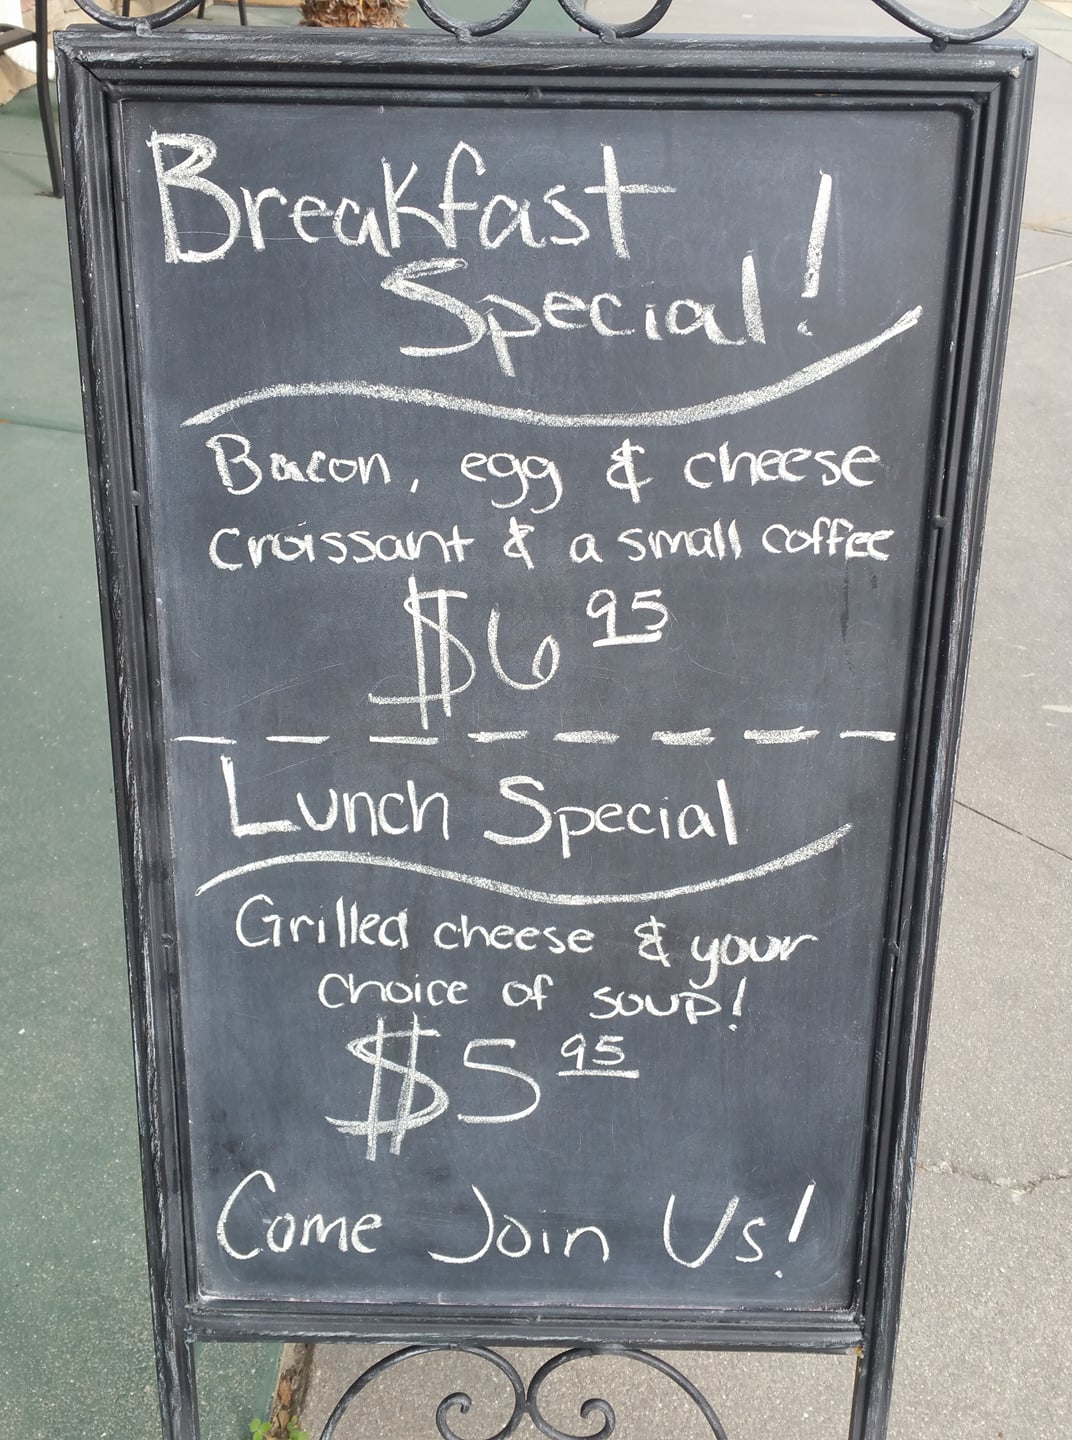 Breakfast
Special!
Bacon, egg & cheese
croissant & a small coffee
$6 95
Lunch Special
Grilled cheese & your
choice of soup!
$5 95
Come Join Us!